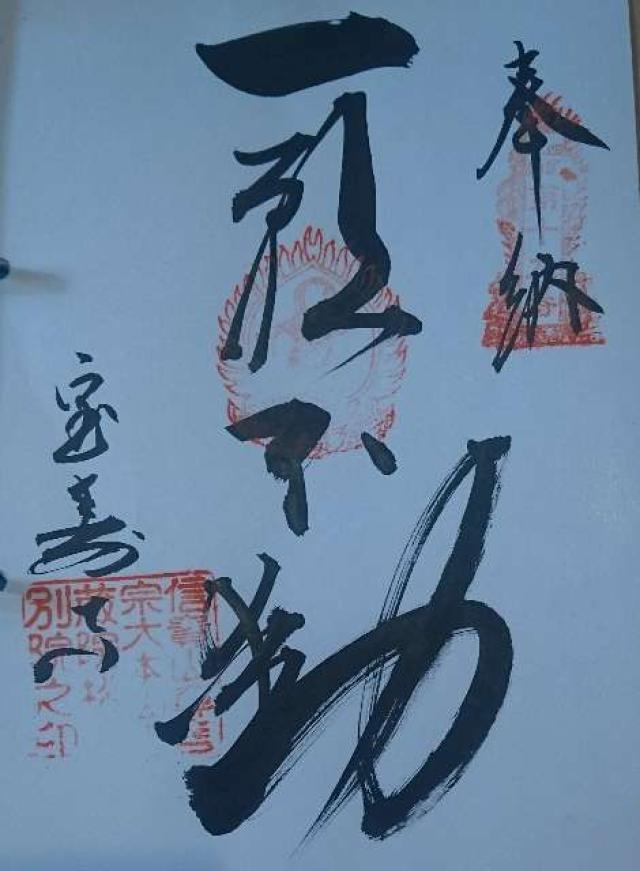 奉納
一願不動
宝寿院
信貴山真言
宗大本山
蔵院
別院之印